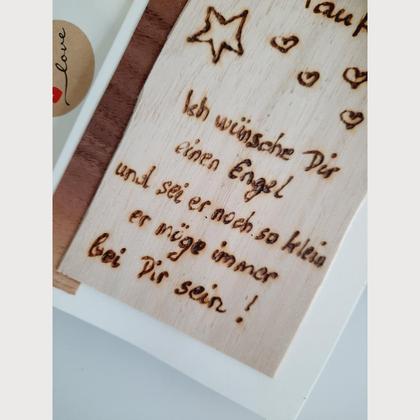 love
Ich wünsche Dir
einen Engel
und sei er noch so klein
er möge immer
bei Dir sein!